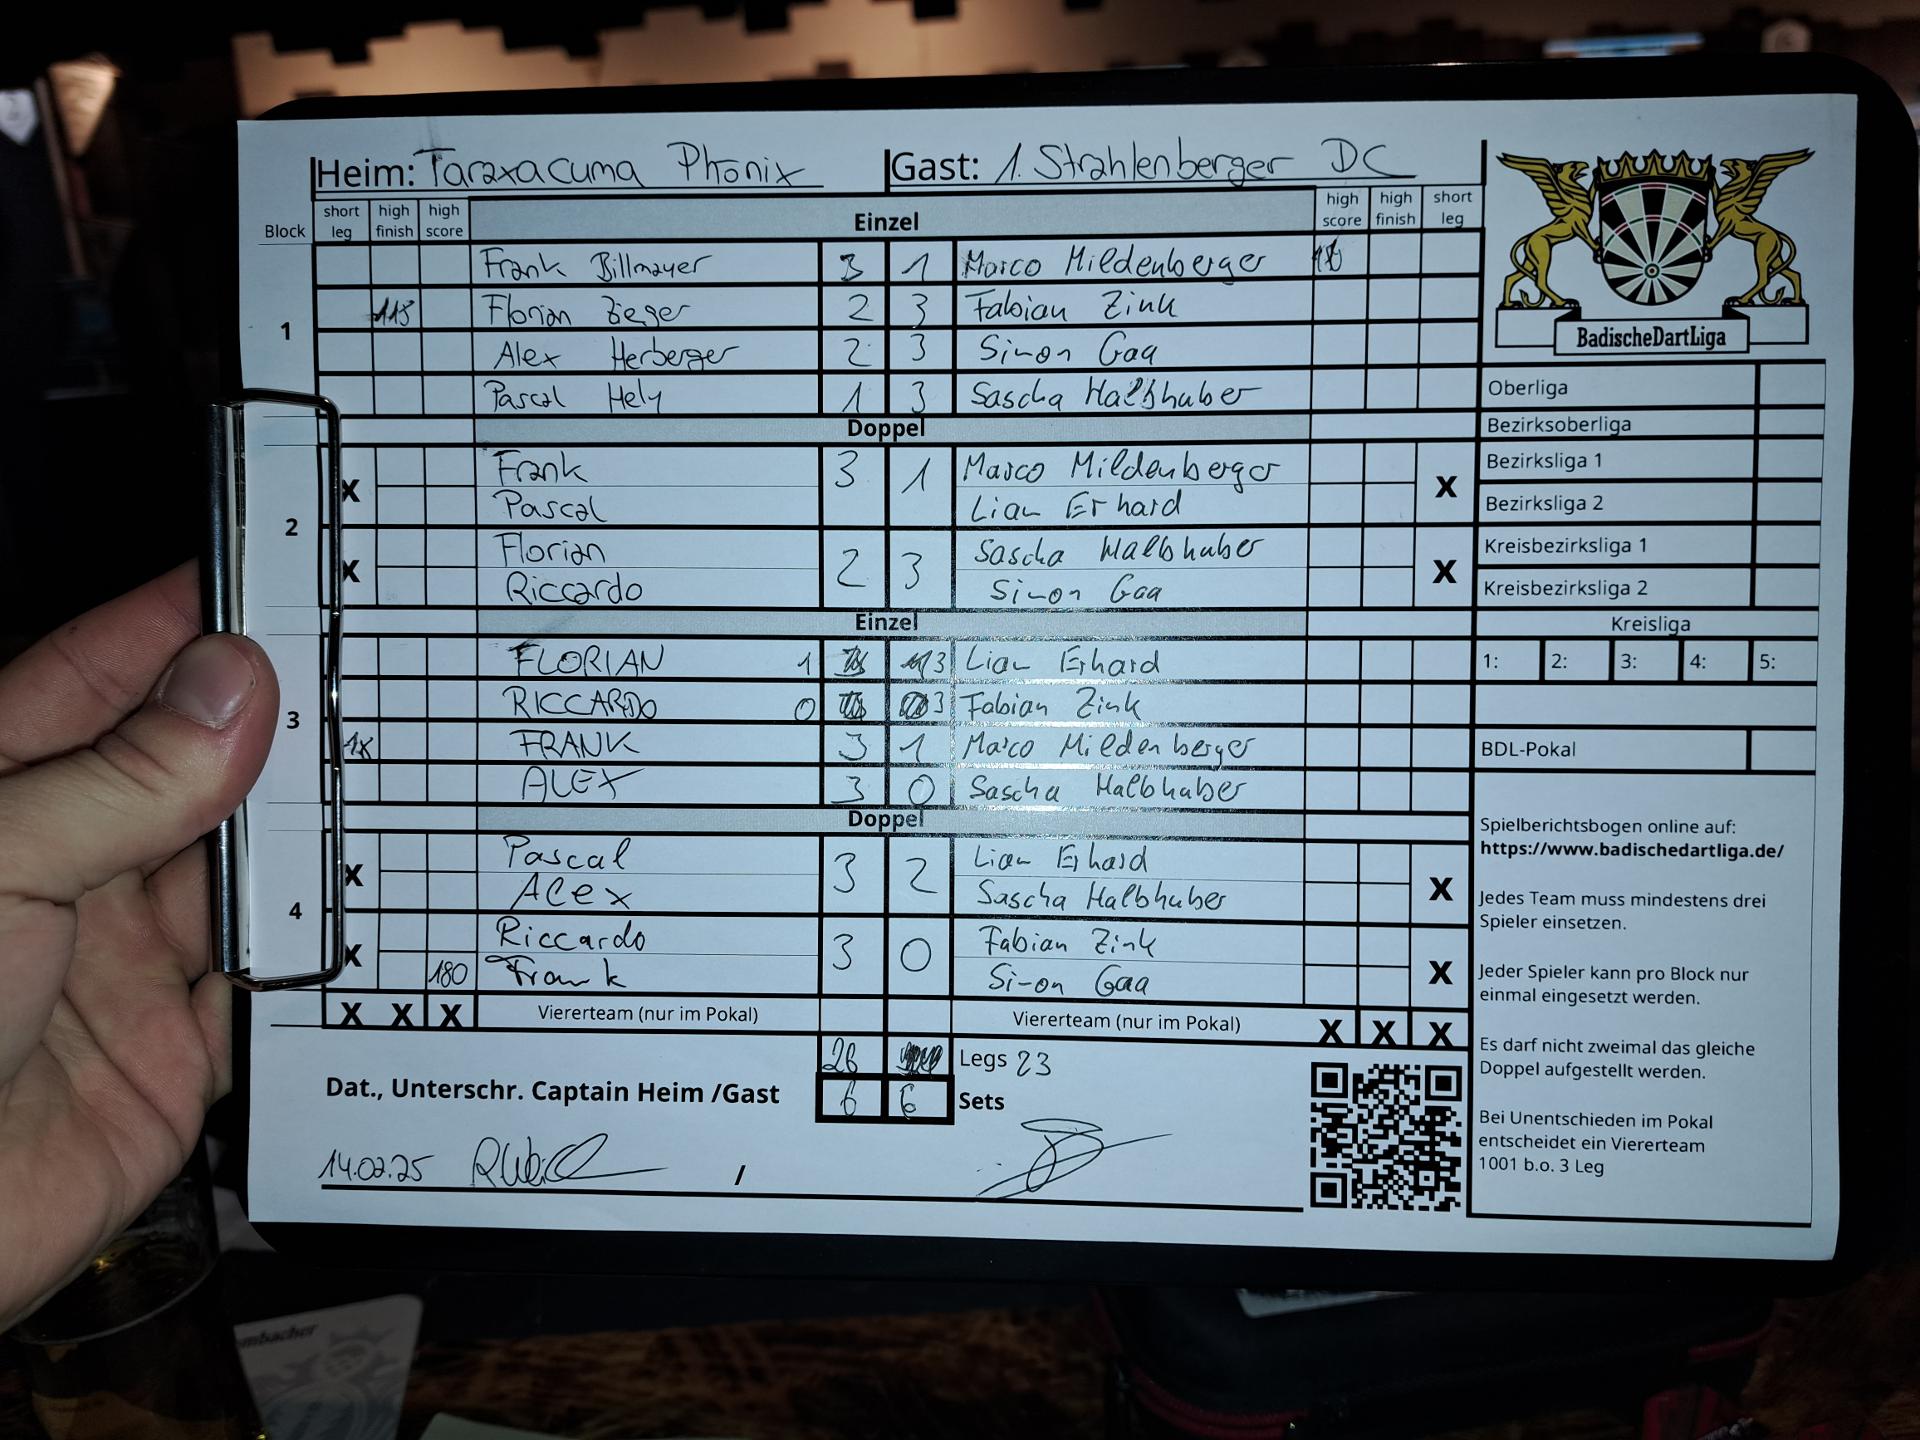 Heim: Taraxacuma Phönix Gast: 1. Strahlenberger DC
Block short leg high finish high score Einzel high score high finish short leg
1
Frank Billmayer 3 1 Marco Mildenberger
Florian Zieger 2 3 Fabian Zink
Alex Herberger 2 3 Simon Gaa
Pascal Hely 1 3 Sascha Halbhuber
Doppel
2
X Frank 3 1 Marco Mildenberger X
Pascal Lian Erhard
X Florian 2 3 Sascha Halbhuber X
Riccardo Simon Gaa
Einzel
3
FLORIAN 1 3 Lian Erhard
RICCARDO 0 3 Fabian Zink
18 FRANK 3 1 Marco Mildenberger
ALEX 3 0 Sascha Halbhuber
Doppel
4
X Pascal 3 2 Lian Erhard X
Alex Sascha Halbhuber
X Riccardo 3 0 Fabian Zink X
180 Frank Simon Gaa
X X X Viererteam (nur im Pokal) Viererteam (nur im Pokal) X X X
26 Legs 23
Dat., Unterschr. Captain Heim /Gast 6 6 Sets
14.02.25 /
BadischeDartLiga
Oberliga
Bezirksoberliga
Bezirksliga 1
Bezirksliga 2
Kreisbezirksliga 1
Kreisbezirksliga 2
Kreisliga
1: 2: 3: 4: 5:
BDL-Pokal
Spielberichtsbogen online auf:
https://www.badischedartliga.de/
Jedes Team muss mindestens drei
Spieler einsetzen.
Jeder Spieler kann pro Block nur
einmal eingesetzt werden.
Es darf nicht zweimal das gleiche
Doppel aufgestellt werden.
Bei Unentschieden im Pokal
entscheidet ein Viererteam
1001 b.o. 3 Leg
mbacher